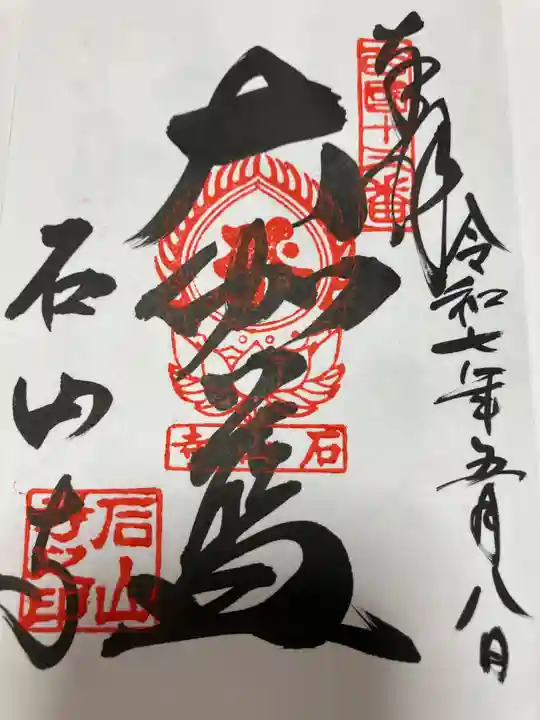 奉拝
西国十三番
令和七年五月八日
大伽藍
石山寺
石山寺
石山寺印